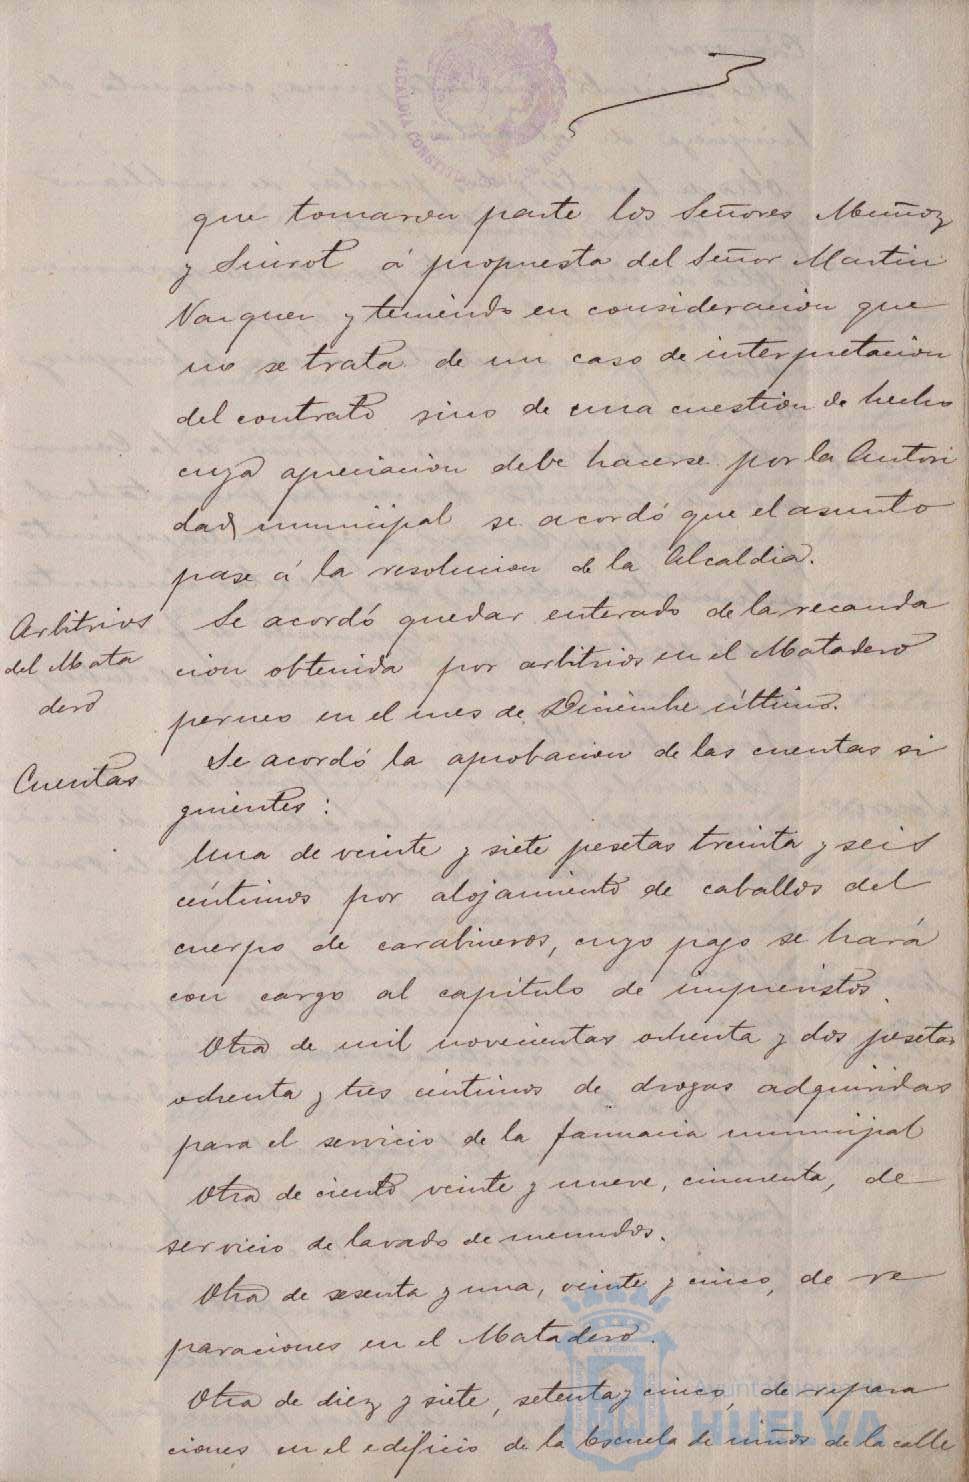 ALCALDIA CONSTITUCIONAL
que tomaron parte los Señores Muñoz
y Siurot á propuesta del Señor Martin
Vazquez y teniendo en consideracion que
no se trata de un caso de interpretacion
del contrato sino de una cuestion de hecho
cuya apreciacion debe hacerse por la Autori
dad municipal se acordó que el asunto
pase á la resolucion de la Alcaldia.
Arbitrios
del Mata
dero
Se acordó quedar enterado de la recauda
cion obtenida por arbitrios en el Matadero
perneo en el mes de Diciembre último.
Cuentas
Se acordó la aprobacion de las cuentas si
guientes:
Una de veinte y siete pesetas treinta y seis
céntimos por alojamiento de caballos del
cuerpo de carabineros, cuyo pago se hará
con cargo al capítulo de imprevistos.
Otra de mil novecientas ochenta y dos pesetas
ochenta y tres céntimos de drogas adquiridas
para el servicio de la farmacia municipal
Otra de ciento veinte y nueve, cincuenta, de
servicio de lavado de menudos.
Otra de sesenta y una, veinte y cinco, de re
paraciones en el Matadero.
Otra de diez y siete, setenta y cinco, de repara
ciones en el edificio de la Escuela de niños de la calle
Ayuntamiento de
HUELVA